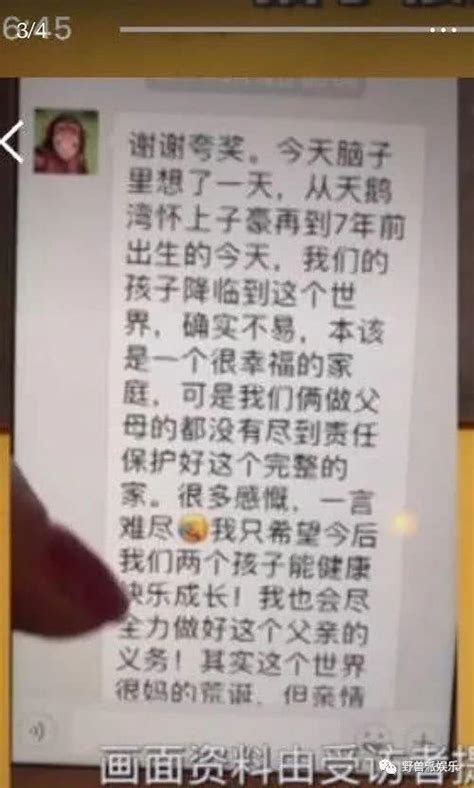 6:45
3/4
谢谢夸奖。今天脑子
里想了一天，从天鹅
湾怀上子豪再到7年前
出生的今天，我们的
孩子降临到这个世
界，确实不易，本该
是一个很幸福的家
庭，可是我们俩做父
母的都没有尽到责任
保护好这个完整的
家。很多感慨，一言
难尽🤣我只希望今后
我们两个孩子能健康
快乐成长！我也会尽
全力做好这个父亲的
义务！其实这个世界
很妈的荒诞，但亲情
画面资料由受访者提
野兽派娱乐